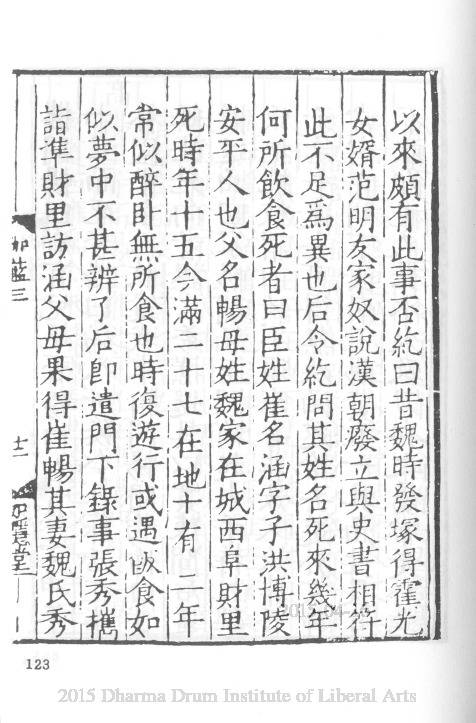 以來頗有此事否紇曰昔魏時發塚得霍光
女婿范明友家奴說漢朝廢立與史書相符
此不足爲異也后令紇問其姓名死來幾年
何所飲食死者曰臣姓崔名涵字子洪博陵
安平人也父名暢母姓魏家在城西阜財里
死時年十五今滿二十七在地十有二年
常似醉卧無所食也時復遊行或遇飯食如
似夢中不甚辨了后卽遣門下錄事張秀攜
詣準財里訪涵父母果得崔暢其妻魏氏秀
伽藍三
十二
如隱堂
123
2015 Dharma Drum Institute of Liberal Arts